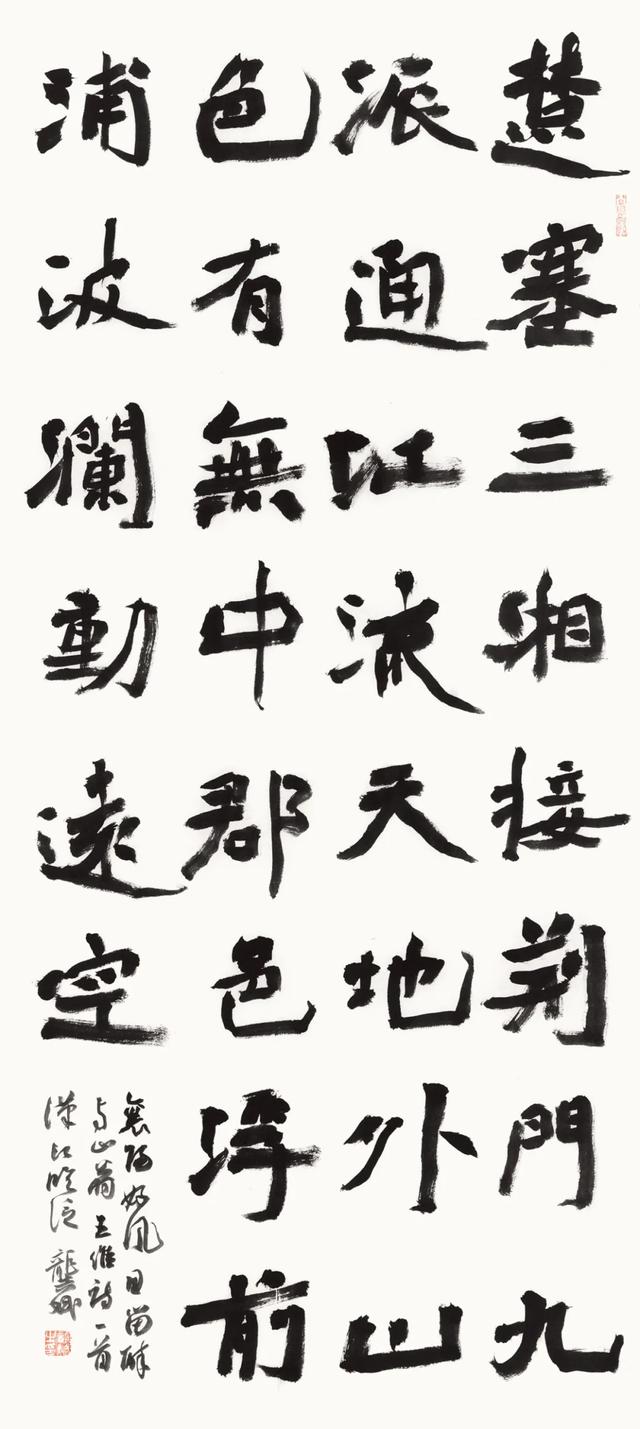 楚塞三湘接荆門九
派通江流天地外山
色有無中郡邑浮前
浦波瀾動遠空
襄陽好風日留醉
与山翁 王維詩一首
漢江臨泛 龔